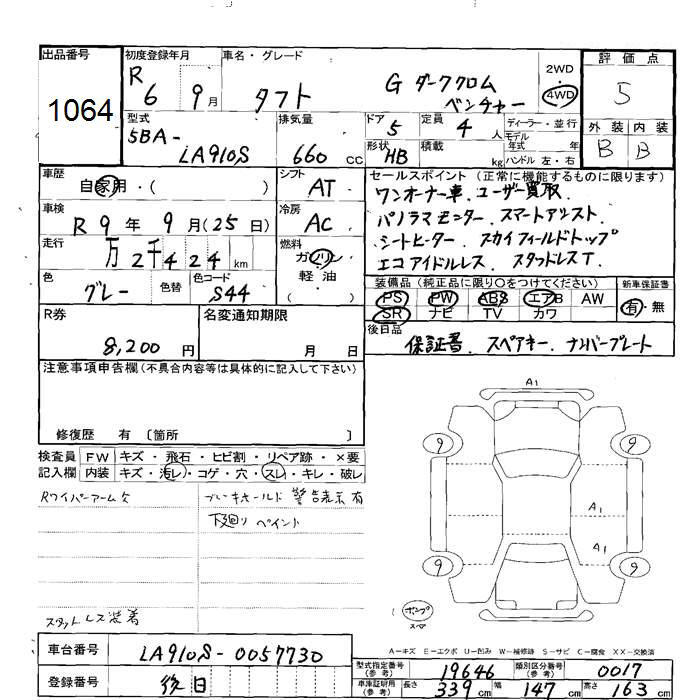 出品番号 初度登録年月 車名・グレード 評価点
1064 R 6 9月 タフト G ダーククロム ベンチャー 2WD 4WD 5
型式 排気量 ドア 定員 ディーラー・並行 外装 内装
5BA- LA910S 660 CC 5 4人 モデル年式 年 B B
形状 HB 積載 kg ハンドル 左・右
車歴 シフト セールスポイント (正常に機能するものに限ります)
自家用・( ) AT ワンオーナー車、ユーザー買取、
車検 冷房 パノラマモニター、スマートアシスト、
R 9年 9月(25日) AC シートヒーター、スカイフィールドトップ
走行 燃料 エコアイドルレス、スタッドレスT、
万 2千424 km ガソリン 軽油 ・( )
色 色替 色コード 装備品 (純正品に限り○をつけてください) 新車保証書
グレー S44 PS PW ABS エアB AW 有・無
SR ナビ TV カワ
R券 名変通知期限 後日品
8,200円 月 日 保証書、スペアキー、ナンバープレート
注意事項申告欄 (不具合内容等は具体的に記入して下さい)
修復歴 有 〔箇所 〕
検査員 FW キズ・飛石・ヒビ割・リペア跡・×要
記入欄 内装 キズ・汚レ・コゲ・穴・スレ・キレ・破レ
Rワイパーアームケ
警告表示有
下廻り ペイント
スタットレス装着
A1
9 9
A1
A1
9 9
スペア
A-キズ E-エクボ U-凹み W-補修跡 S-サビ C-腐食 XX-交換済
車台番号 LA910S-0057730
登録番号 後日
型式指定番号 (参考) 19646 類別区分番号 (参考) 0017
車庫証明用 (参考) 長さ 339cm 幅 147cm 高さ 163cm